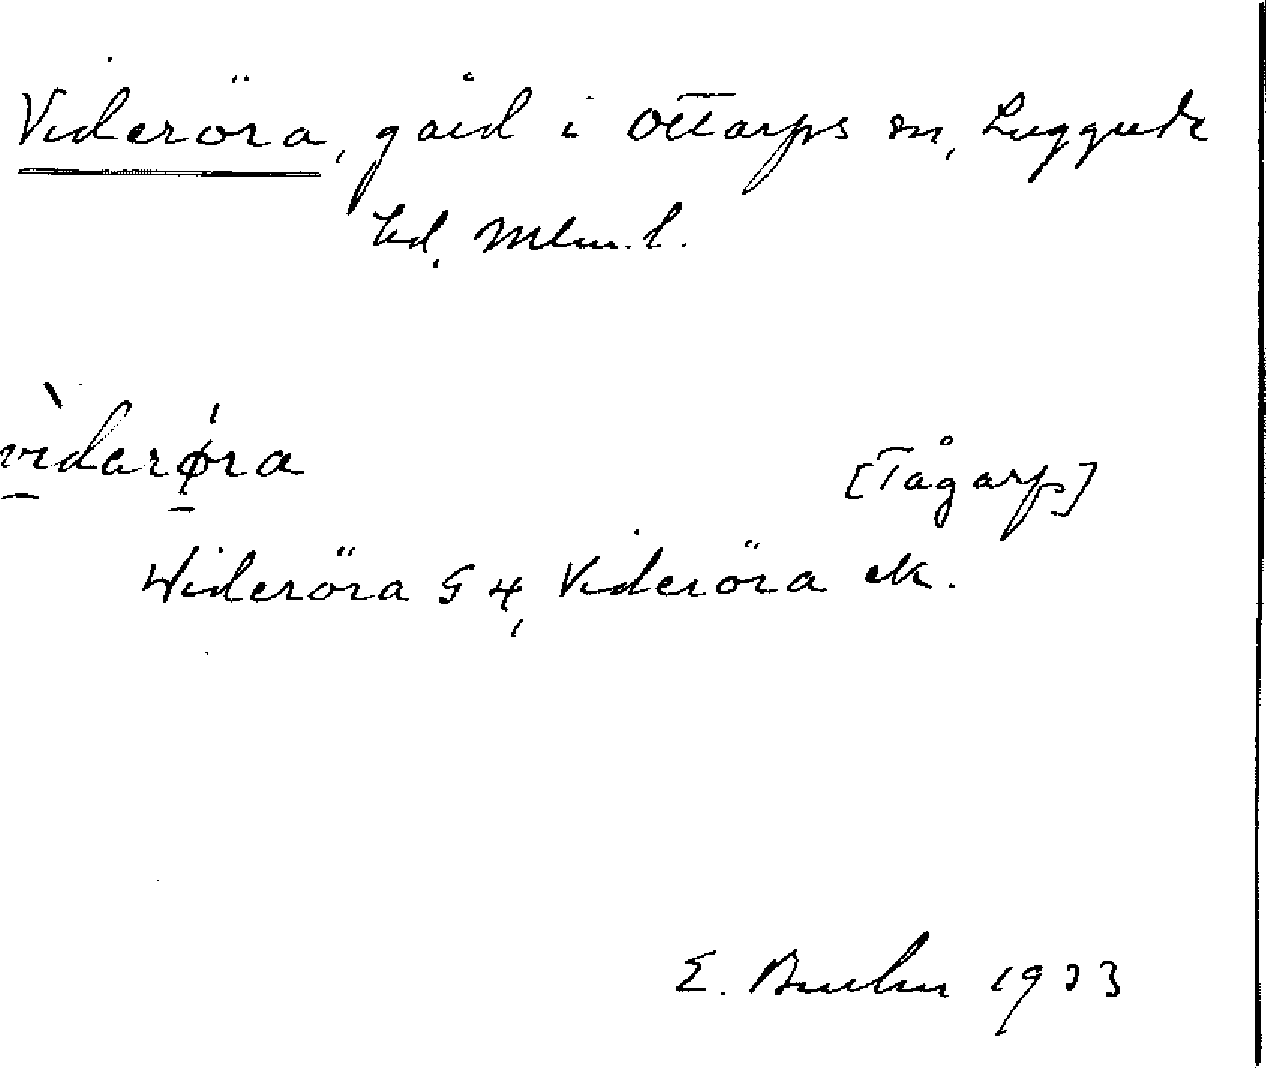 Videröra, gård i Ottarps sn, Luggude
hd, Mlm. l.
vìdarø̀ra [Tågarp]
Wideröra G 4, Videröra ek.
E. 1933